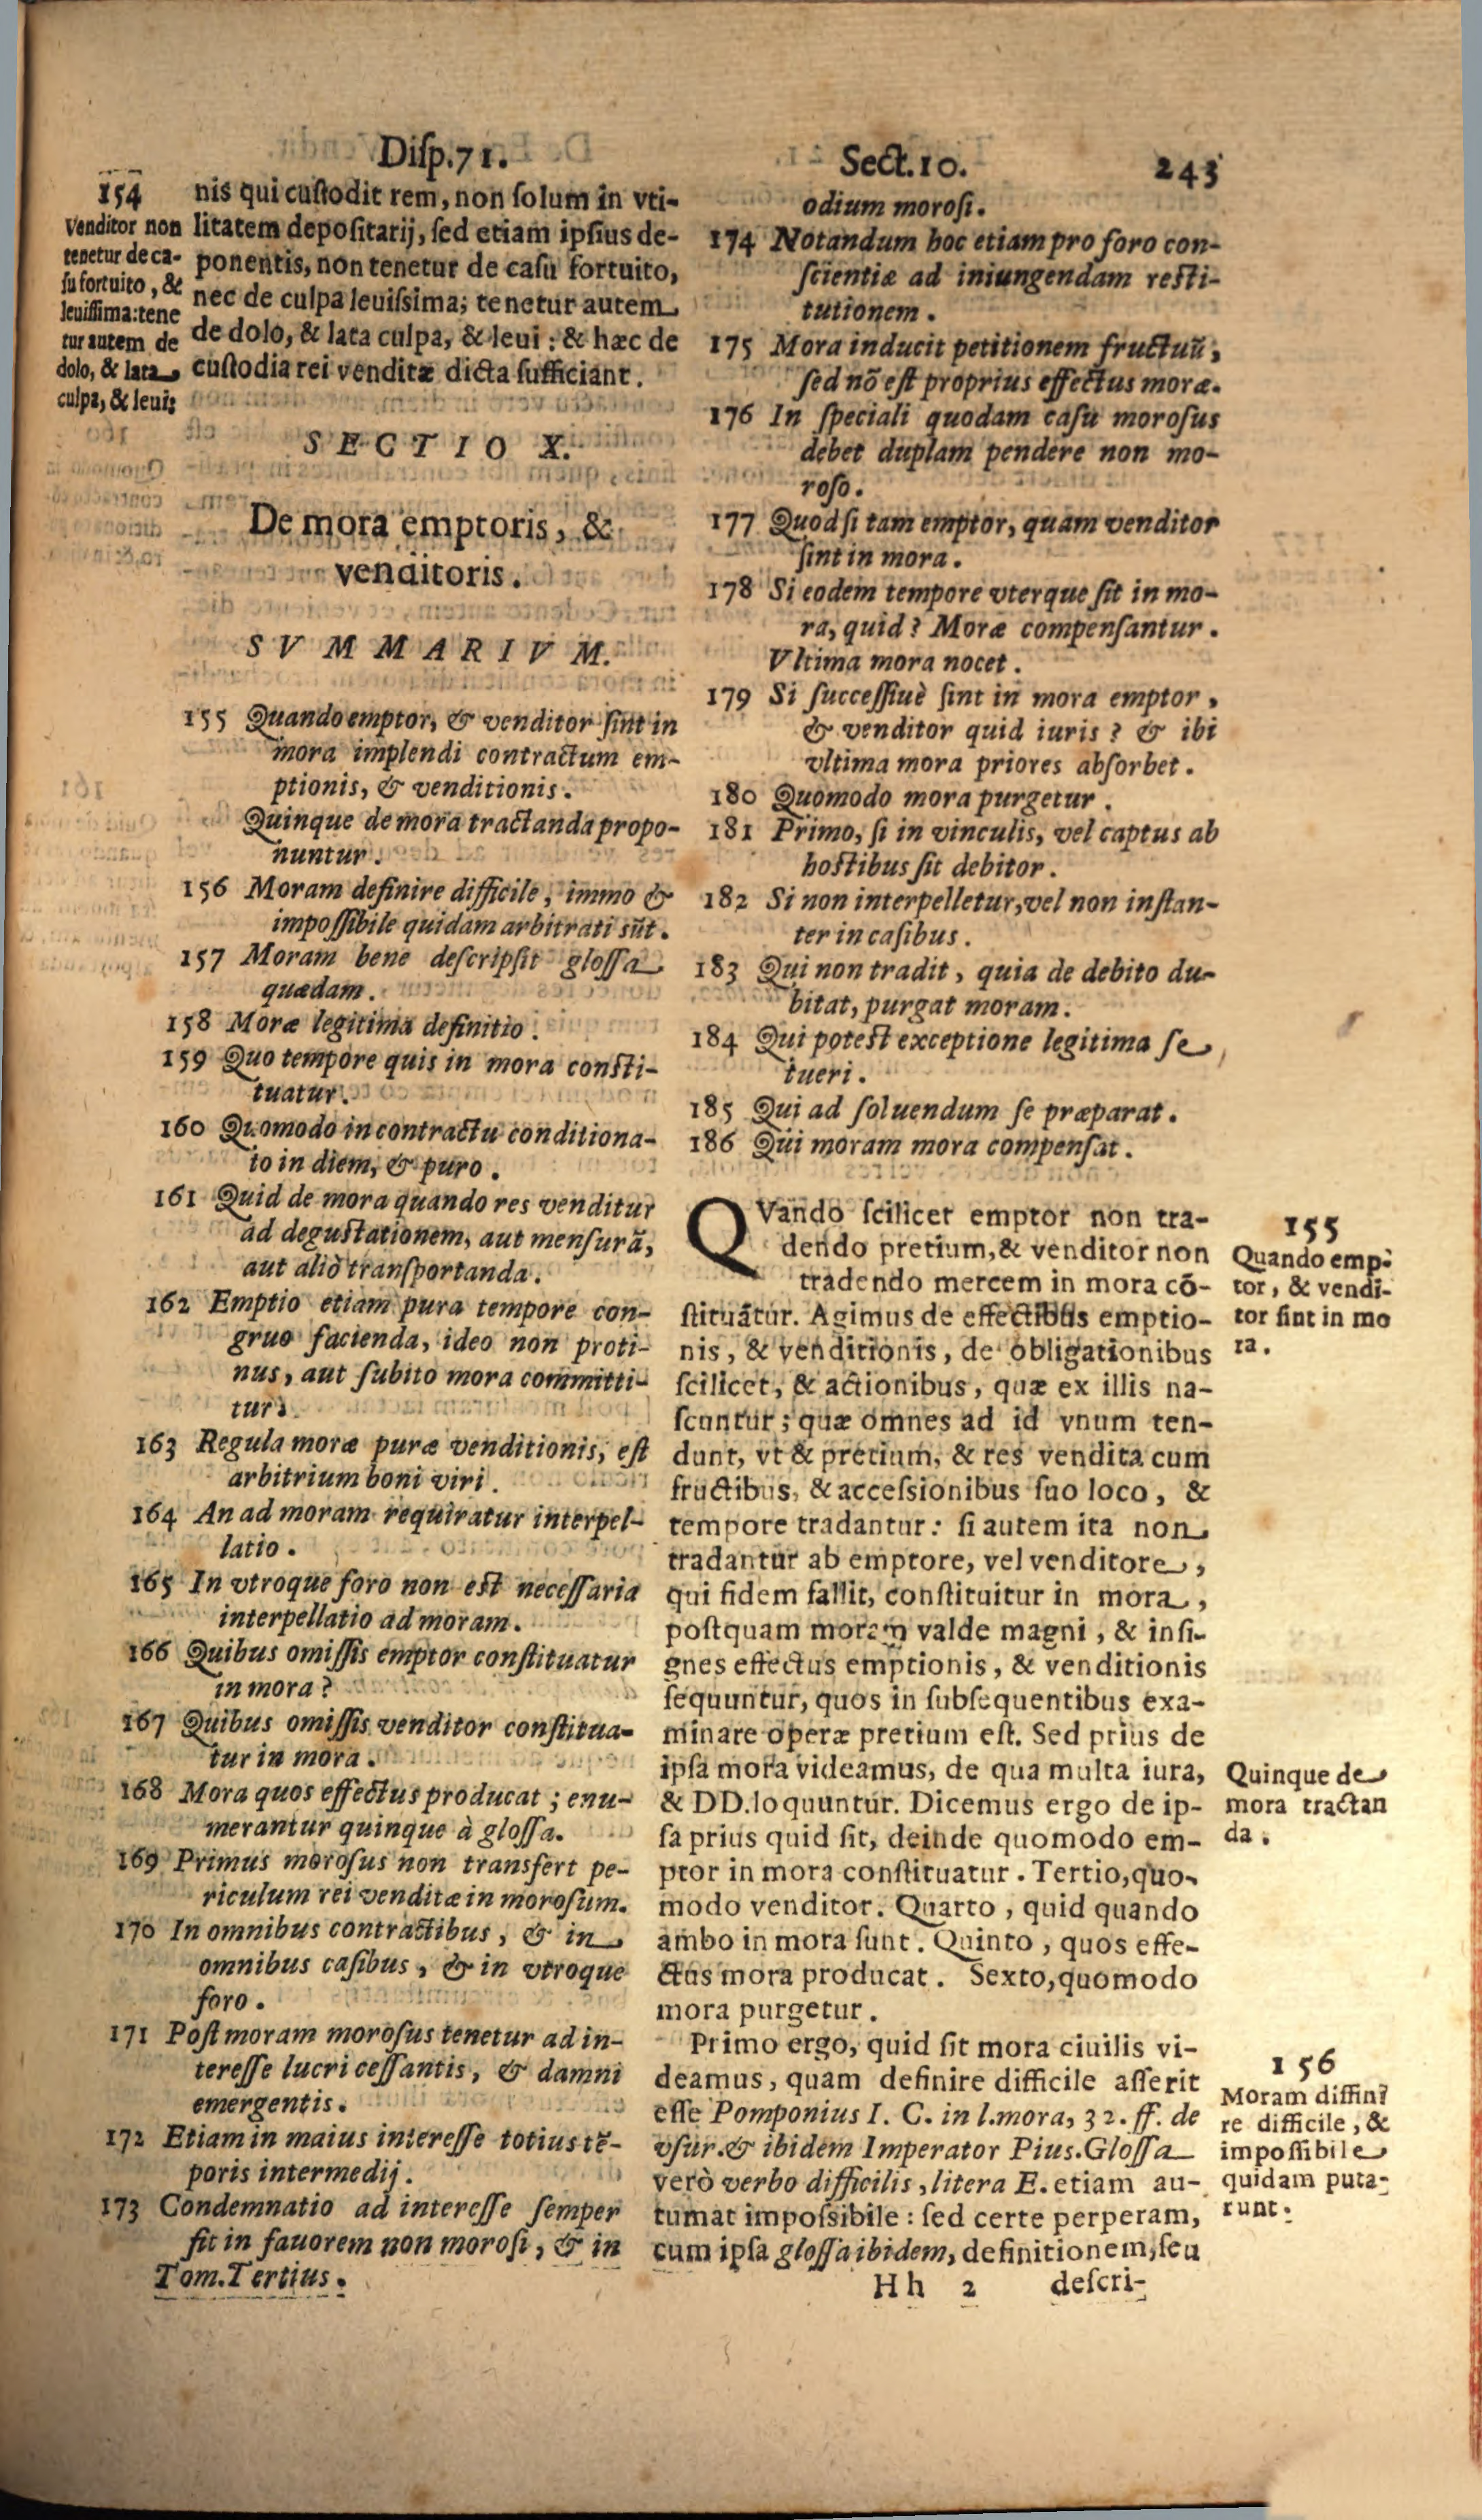 Disp.71. Sect.10. 243
154
Venditor non
tenetur de ca-
su fortuito, &
leuissima:tene
tur autem de
dolo, & lata
culpa, & leui;
nis qui custodit rem, non solum in vti-
litatem depositarij, sed etiam ipsius de-
ponentis, non tenetur de casu fortuito,
nec de culpa leuissima; tenetur autem
de dolo, & lata culpa, & leui: & hæc de
custodia rei venditæ dicta sufficiant.
SECTIO X.
De mora emptoris, &
venditoris.
SVMMARIVM.
155 Quando emptor, & venditor sint in
mora implendi contractum em-
ptionis, & venditionis.
Quinque de mora tractanda propo-
nuntur.
156 Moram definire difficile, immo &
impossibile quidam arbitrati sūt.
157 Moram bene descripsit glossa
quædam.
158 Moræ legitima definitio.
159 Quo tempore quis in mora consti-
tuatur.
160 Quomodo in contractu conditiona-
to in diem, & puro.
161 Quid de mora quando res venditur
ad degustationem, aut mensurā,
aut aliò transportanda.
162 Emptio etiam pura tempore con-
gruo facienda, ideo non proti-
nus, aut subito mora committi-
tur.
163 Regula moræ puræ venditionis, est
arbitrium boni viri.
164 An ad moram requiratur interpel-
latio.
165 In vtroque foro non est necessaria
interpellatio ad moram.
166 Quibus omissis emptor constituatur
in mora?
167 Quibus omissis venditor constitua-
tur in mora.
168 Mora quos effectus producat; enu-
merantur quinque à glossa.
169 Primus morosus non transfert pe-
riculum rei venditæ in morosum.
170 In omnibus contractibus, & in
omnibus casibus, & in vtroque
foro.
171 Post moram morosus tenetur ad in-
teresse lucri cessantis, & damni
emergentis.
172 Etiam in maius interesse totius tē-
poris intermedij.
173 Condemnatio ad interesse semper
fit in fauorem non morosi, & in
Tom.Tertius.
odium morosi.
174 Notandum hoc etiam pro foro con-
scientiæ ad iniungendam resti-
tutionem.
175 Mora inducit petitionem fructuū,
sed nō est proprius effectus moræ.
176 In speciali quodam casu morosus
debet duplam pendere non mo-
roso.
177 Quod si tam emptor, quam venditor
sint in mora.
178 Si eodem tempore vterque sit in mo-
ra, quid? Moræ compensantur.
Vltima mora nocet.
179 Si successiuè sint in mora emptor,
& venditor quid iuris? & ibi
vltima mora priores absorbet.
180 Quomodo mora purgetur.
181 Primo, si in vinculis, vel captus ab
hostibus sit debitor.
182 Si non interpelletur, vel non instan-
ter in casibus.
183 Qui non tradit, quia de debito du-
bitat, purgat moram.
184 Qui potest exceptione legitima se
tueri.
185 Qui ad soluendum se præparat.
186 Qui moram mora compensat.
QVando scilicet emptor non tra-
dendo pretium,& venditor non
tradendo mercem in mora cō-
stituātur. Agimus de effectibus emptio-
nis, & venditionis, de obligationibus
scilicet, & actionibus, quæ ex illis na-
scuntur; quæ omnes ad id vnum ten-
dunt, vt & pretium, & res vendita cum
fructibus, & accessionibus suo loco, &
tempore tradantur: si autem ita non
tradantur ab emptore, vel venditore,
qui fidem fallit, constituitur in mora,
postquam moram valde magni, & insi-
gnes effectus emptionis, & venditionis
sequuntur, quos in subsequentibus exa-
minare operæ pretium est. Sed prius de
ipsa mora videamus, de qua multa iura,
& DD.loquuntur. Dicemus ergo de ip-
sa prius quid sit, deinde quomodo em-
ptor in mora constituatur. Tertio,quo-
modo venditor. Quarto, quid quando
ambo in mora sunt. Quinto, quos effe-
ctus mora producat. Sexto,quomodo
mora purgetur.
Primo ergo, quid sit mora ciuilis vi-
deamus, quam definire difficile asserit
esse Pomponius I. C. in l.mora, 32. ff. de
vsur.& ibidem Imperator Pius.Glossa
verò verbo difficilis, litera E. etiam au-
tumat impossibile: sed certe perperam,
cum ipsa glossa ibidem, definitionem,seu
Hh 2 descri-
155
Quando emp-
tor, & vendi-
tor sint in mo
ra.
Quinque de
mora tractan
da.
156
Moram diffini
re difficile, &
impossibile
quidam puta-
runt.